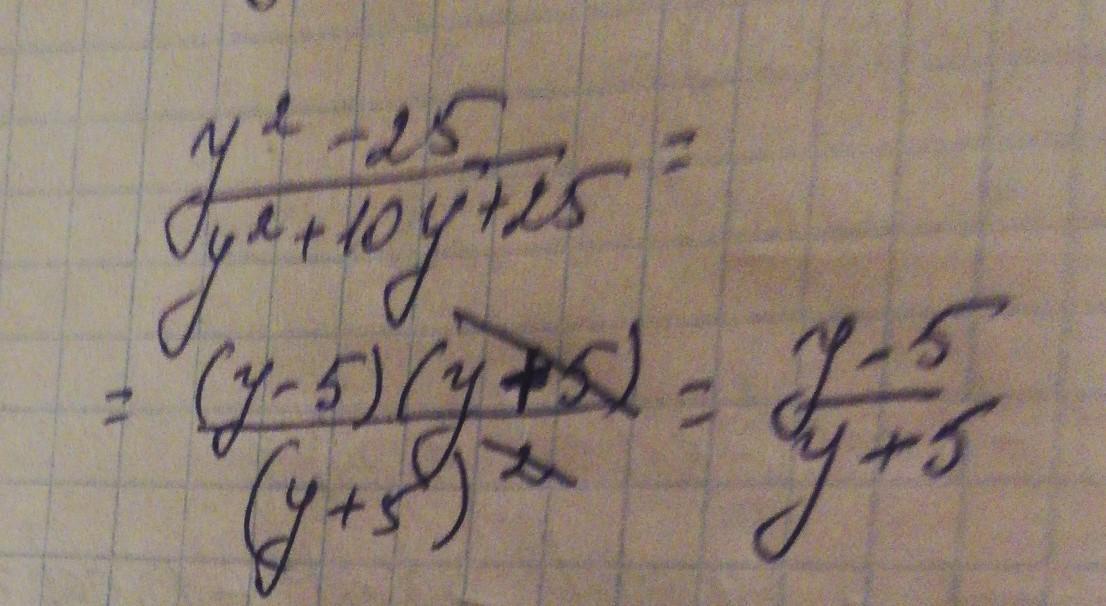 (y² - 25)/(y² + 10y + 25) =
= ((y - 5)(y + 5))/(y + 5)² = (y - 5)/(y + 5)